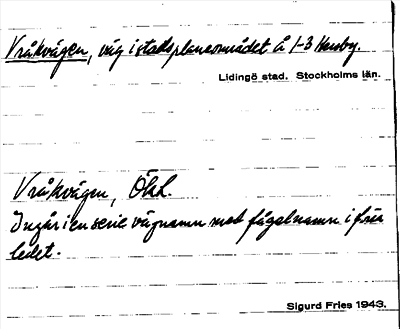 Vråkvägen, väg i stadsplaneområdet å 1-3 Hersby.
Lidingö stad. Stockholms län.
Vråkvägen, Öbd.
Ingår i en serie vägnamn med fågelnamn i förra
ledet.
Sigurd Fries 1943.